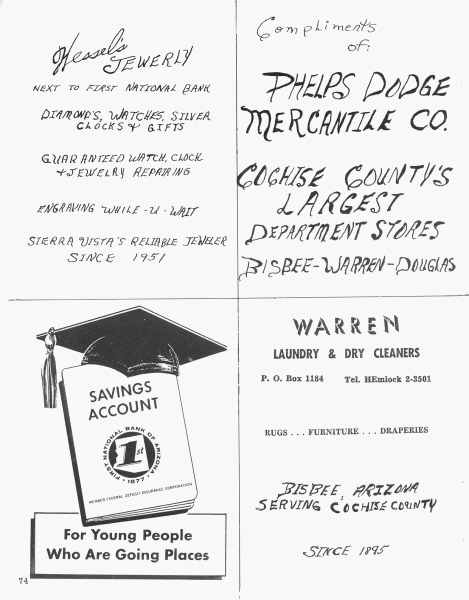 Hessel's
JEWERLY
NEXT TO FIRST NATIONAL BANK
DIAMOND'S, WATCHES, SILVER
CLOCKS & GIFTS
GUARANTEED WATCH, CLOCK
& JEWELRY REPAIRING
ENGRAVING WHILE-U-WAIT
SIERRA VISTA'S RELIABLE JEWELER
SINCE 1951
Compliments
of:
PHELPS DODGE
MERCANTILE CO.
COCHISE COUNTY'S
LARGEST
DEPARTMENT STORES
BISBEE-WARREN-DOUGLAS
SAVINGS
ACCOUNT
FIRST NATIONAL BANK OF ARIZONA
1st
•1877•
MEMBER FEDERAL DEPOSIT INSURANCE CORPORATION
For Young People
Who Are Going Places
WARREN
LAUNDRY & DRY CLEANERS
P. O. Box 1184 Tel. HEmlock 2-3501
RUGS . . . FURNITURE . . . DRAPERIES
BISBEE, ARIZONA
SERVING COCHISE COUNTY
SINCE 1895
74